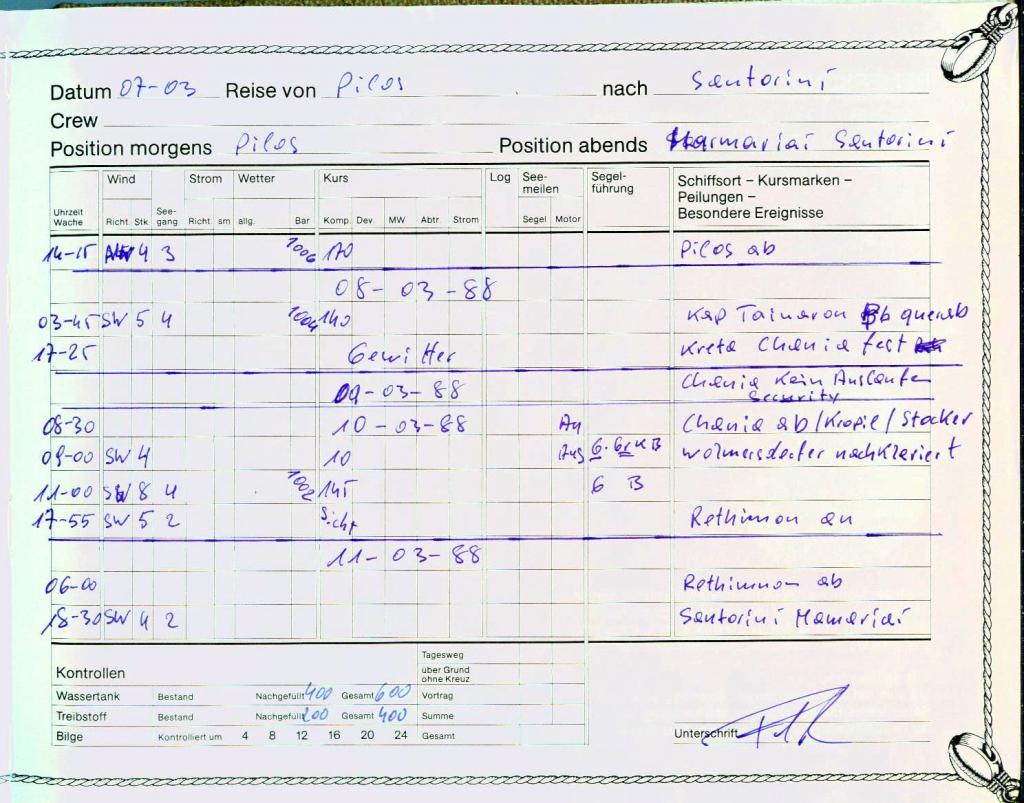 Datum 07-03 Reise von Pilos nach Santorini
Crew
Position morgens Pilos Position abends Harmariai Santorini
Wind Strom Wetter Kurs Log See- meilen Segel- führung Schiffsort – Kursmarken – Peilungen – Besondere Ereignisse
Uhrzeit Wache Richt. Stk. See- gang Richt. sm allg. Bar Komp. Dev. MW Abtr. Strom Segel Motor
14-15 NW 4 3 1006 170 Pilos ab
08-03-88
03-45 SW 5 4 1004 140 Kap Tainaron Bb querab
17-25 Gewitter Kreta Chania fest
09-03-88 Chania Kein Auslaufen Security
08-30 10-03-88 An Chania ab/Kropie/Stocker
09-00 SW 4 10 Aus G. GrK B Wolmersdorfer nachklariert
11-00 SW 8 4 1002 145 G B
17-55 SW 5 2 Sicht Rethimnon an
11-03-88
06-00 Rethimnon ab
18-30 SW 4 2 Santorini Mamariai
Kontrollen Tagesweg über Grund ohne Kreuz
Wassertank Bestand Nachgefüllt 400 Gesamt 600 Vortrag
Treibstoff Bestand Nachgefüllt 200 Gesamt 400 Summe
Bilge Kontrolliert um 4 8 12 16 20 24 Gesamt
Unterschrift